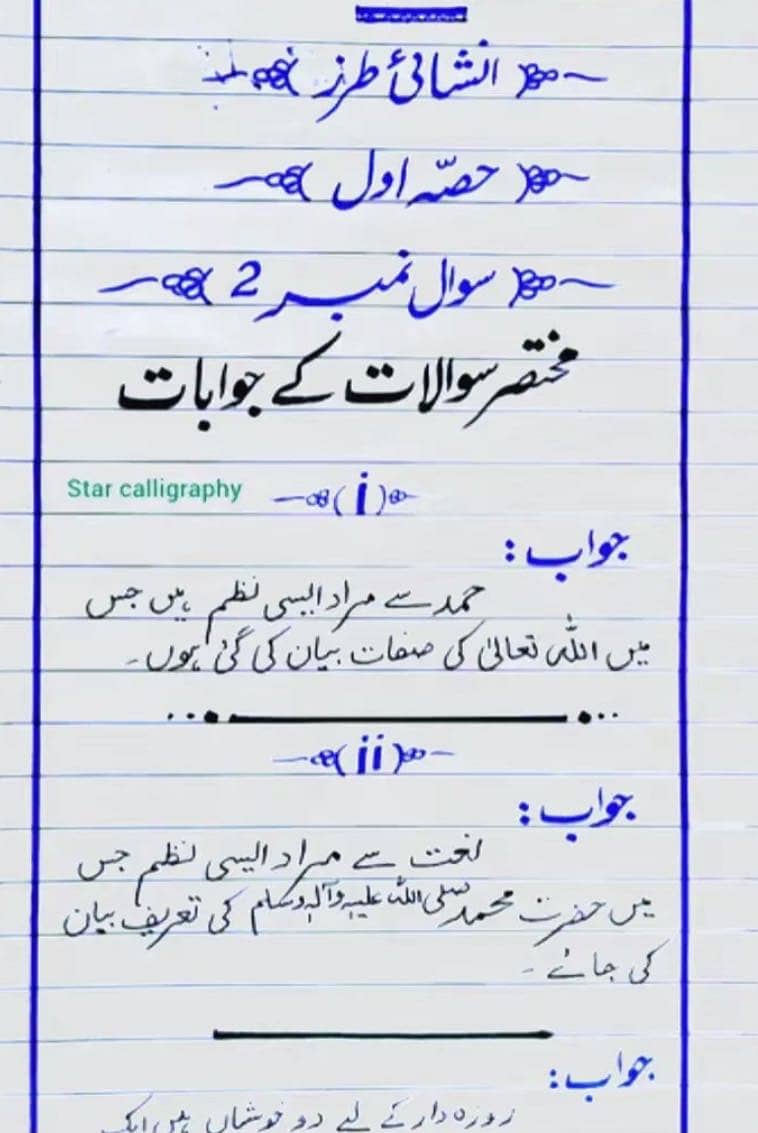 انشائیٔ طرز
حصّہ اول
سوال نمبر 2
مختصر سوالات کے جوابات
Star calligraphy
(i)
جواب:
حمد سے مراد ایسی نظم ہیں جس
میں اللہ تعالیٰ کی صفات بیان کی گئی ہوں۔
(ii)
جواب:
نعت سے مراد ایسی نظم جس
میں حضرت محمد صلی اللہ علیہ وآلہ وسلم کی تعریف بیان
کی جائے۔
جواب:
روزہ دار کے لیے دو خوشیاں ہیں ایک